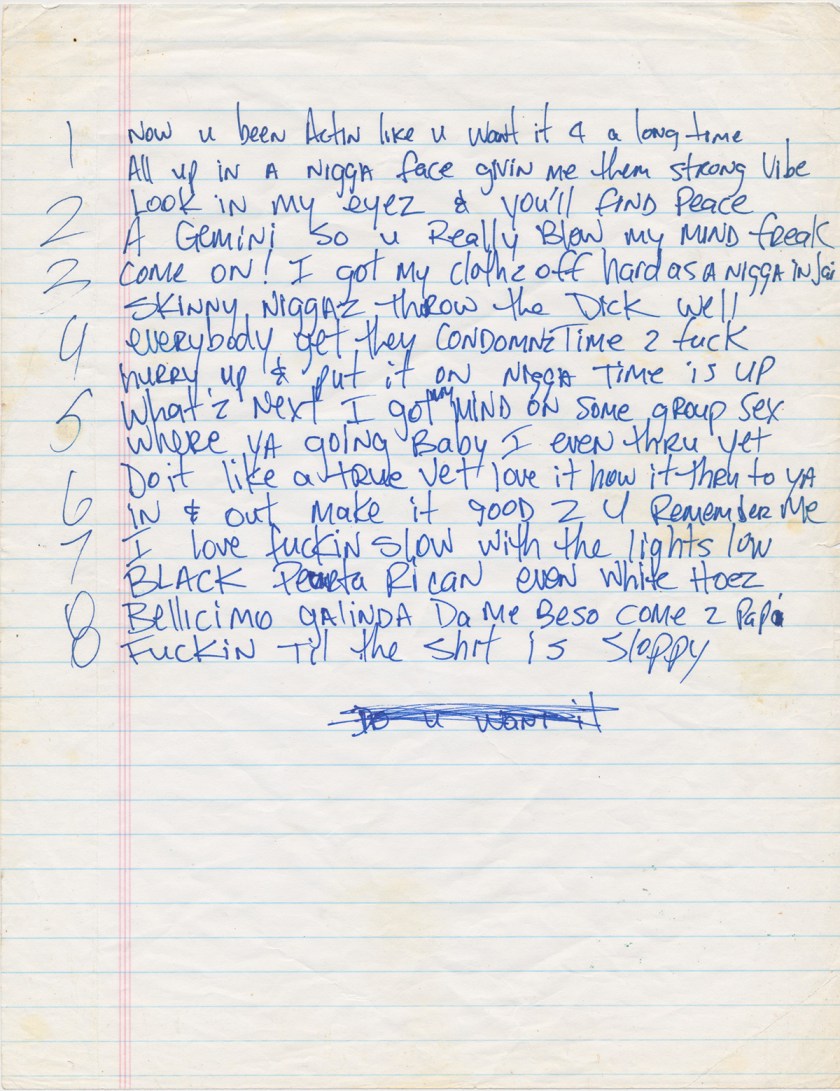 1 Now u been Actin like u want it 4 a long time
All up in A NIGGA face givin me them strong Vibe
2 Look in my eyez & you'll find Peace
A Gemini so u Really Blow my MIND freak
3 come on! I got my clothz off hard as A NIGGA in Jai
SKINNY NIGGAZ throw the Dick well
4 everybody get they CONDOMNZ Time 2 fuck
hurry up & put it on NIGGA Time is up
5 What'z Next I got my MIND ON some group sex
where YA going Baby I even thru yet
6 Do it like a true vet love it how it thru to YA
in & out make it good 2 U Remember Me
7 I love fuckin slow with the lights low
BLACK Rican even white Hoez
8 Bellicimo galinda Da Me Beso come 2 Papa
Fuckin Til the shit is sloppy
Do u want it